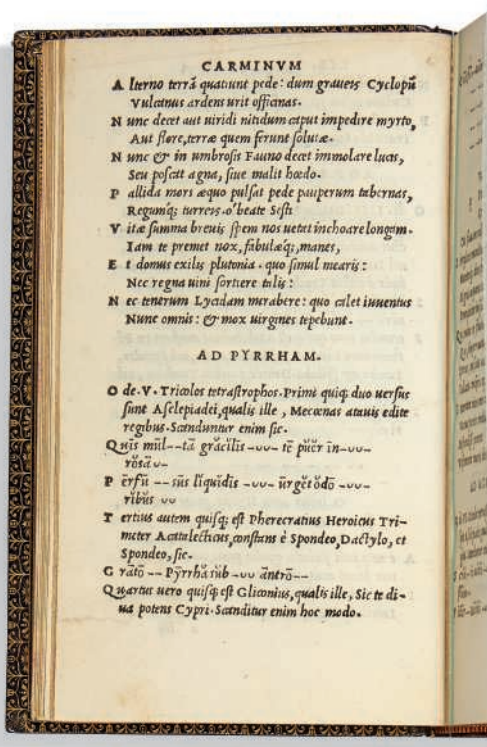 CARMINVM
A lterno terrā quatiunt pede: dum graueis Cyclopū
Vulcanus ardens urit officinas.
N unc decet aut uiridi nitidum caput impedire myrto,
Aut flore, terræ quem ferunt solutæ.
N unc & in umbrosis Fauno decet immolare lucis,
Seu poscat agna, siue malit hœdo.
P allida mors æquo pulsat pede pauperum tabernas,
Regumq; turreis. o' beate Sesti
V itæ summa breuis spem nos uetat inchoare longam.
Iam te premet nox, fabulæq;, manes,
E t domus exilis plutonia. quo simul mearis:
Nec regna uini sortiere talis:
N ec tenerum Lycadam mirabere: quo calet iuuentus
Nunc omnis: & mox uirgines tepebunt.
AD PYRRHAM.
O de. V. Tricolos tetrastrophos. Primi quiq; duo uersus
sunt Asclepiadei, qualis ille, Mecœnas atauis edite
regibus. Scanduntur enim sic.
Quis mūl--tā grăcĭlīs -uu- tē pŭĕr īn-uu-
rŏsā u-
P ērfū -- sūs lĭquĭdīs -uu- ūrgĕt ŏdō -uu-
rĭbŭs uu
T ertius autem quisq; est Pherecratius Heroicus Tri-
meter Acatalecticus, constans è Spondeo, Dactylo, et
Spondeo, sic.
G rātō -- Pȳrrhă sŭb -uu āntrō--
Quartus uero quisq; est Gliconius, qualis ille, Sic te di-
ua potens Cypri. Scanditur enim hoc modo.